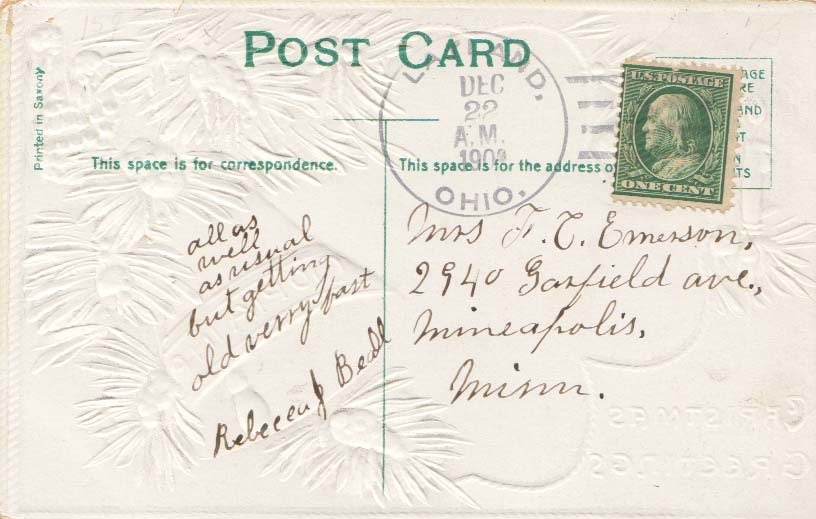 POST CARD
Printed in Saxony
This space is for correspondence.
This space is for the address of
DEC
22
A.M.
OHIO.
U.S. POSTAGE
ONE CENT
all as
well
as usual
but getting
old verry fast
Rebecca J Beall
Mrs F. C. Emerson,
2940 Garfield ave.,
Mineapolis,
Minn.
CHRISTMAS
GREETINGS